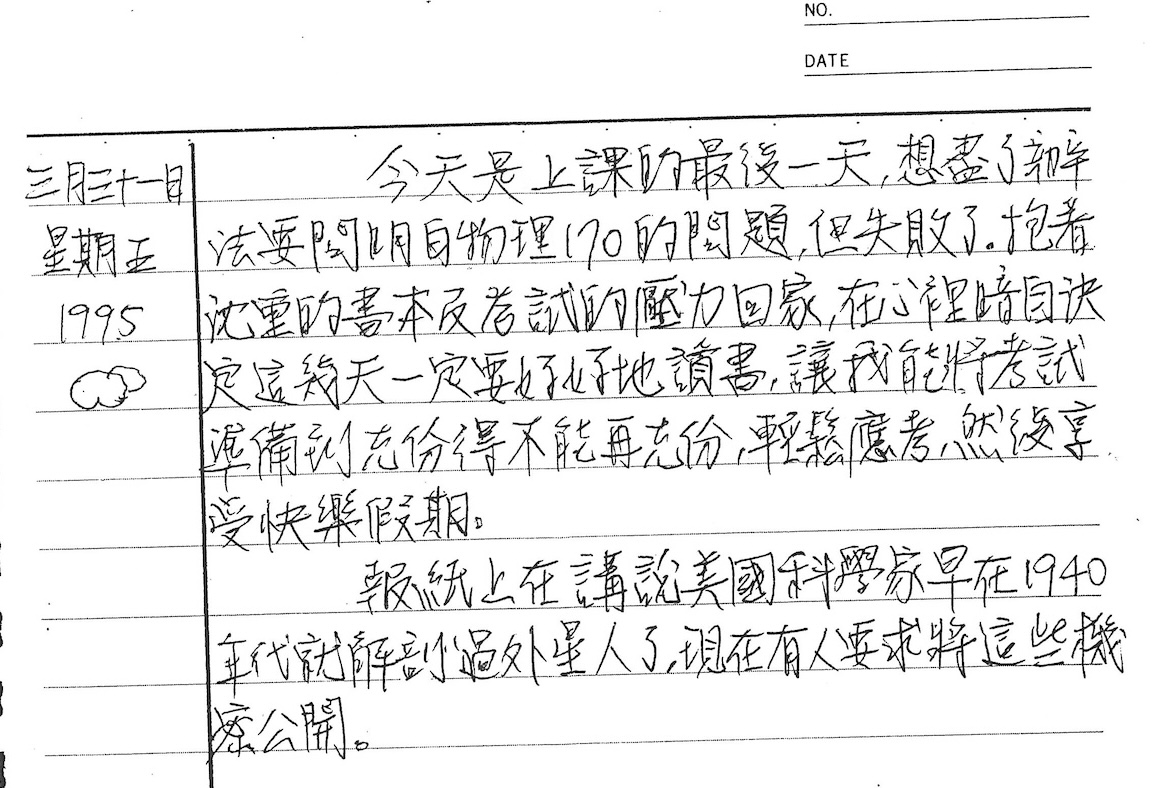 NO.
DATE
三月三十一日
星期五
1995
今天是上課的最後一天,想盡了辦
法要問明白物理170的問題,但失敗了.抱着
沈重的書本及考試的壓力回家,在心裡暗自決
定這幾天一定要好好地讀書,讓我能將考試
準備到充份得不能再充份,輕鬆應考,然後享
受快樂假期。
報紙上在講說美國科學家早在1940
年代就解剖過外星人了,現在有人要求將這些機
公開。